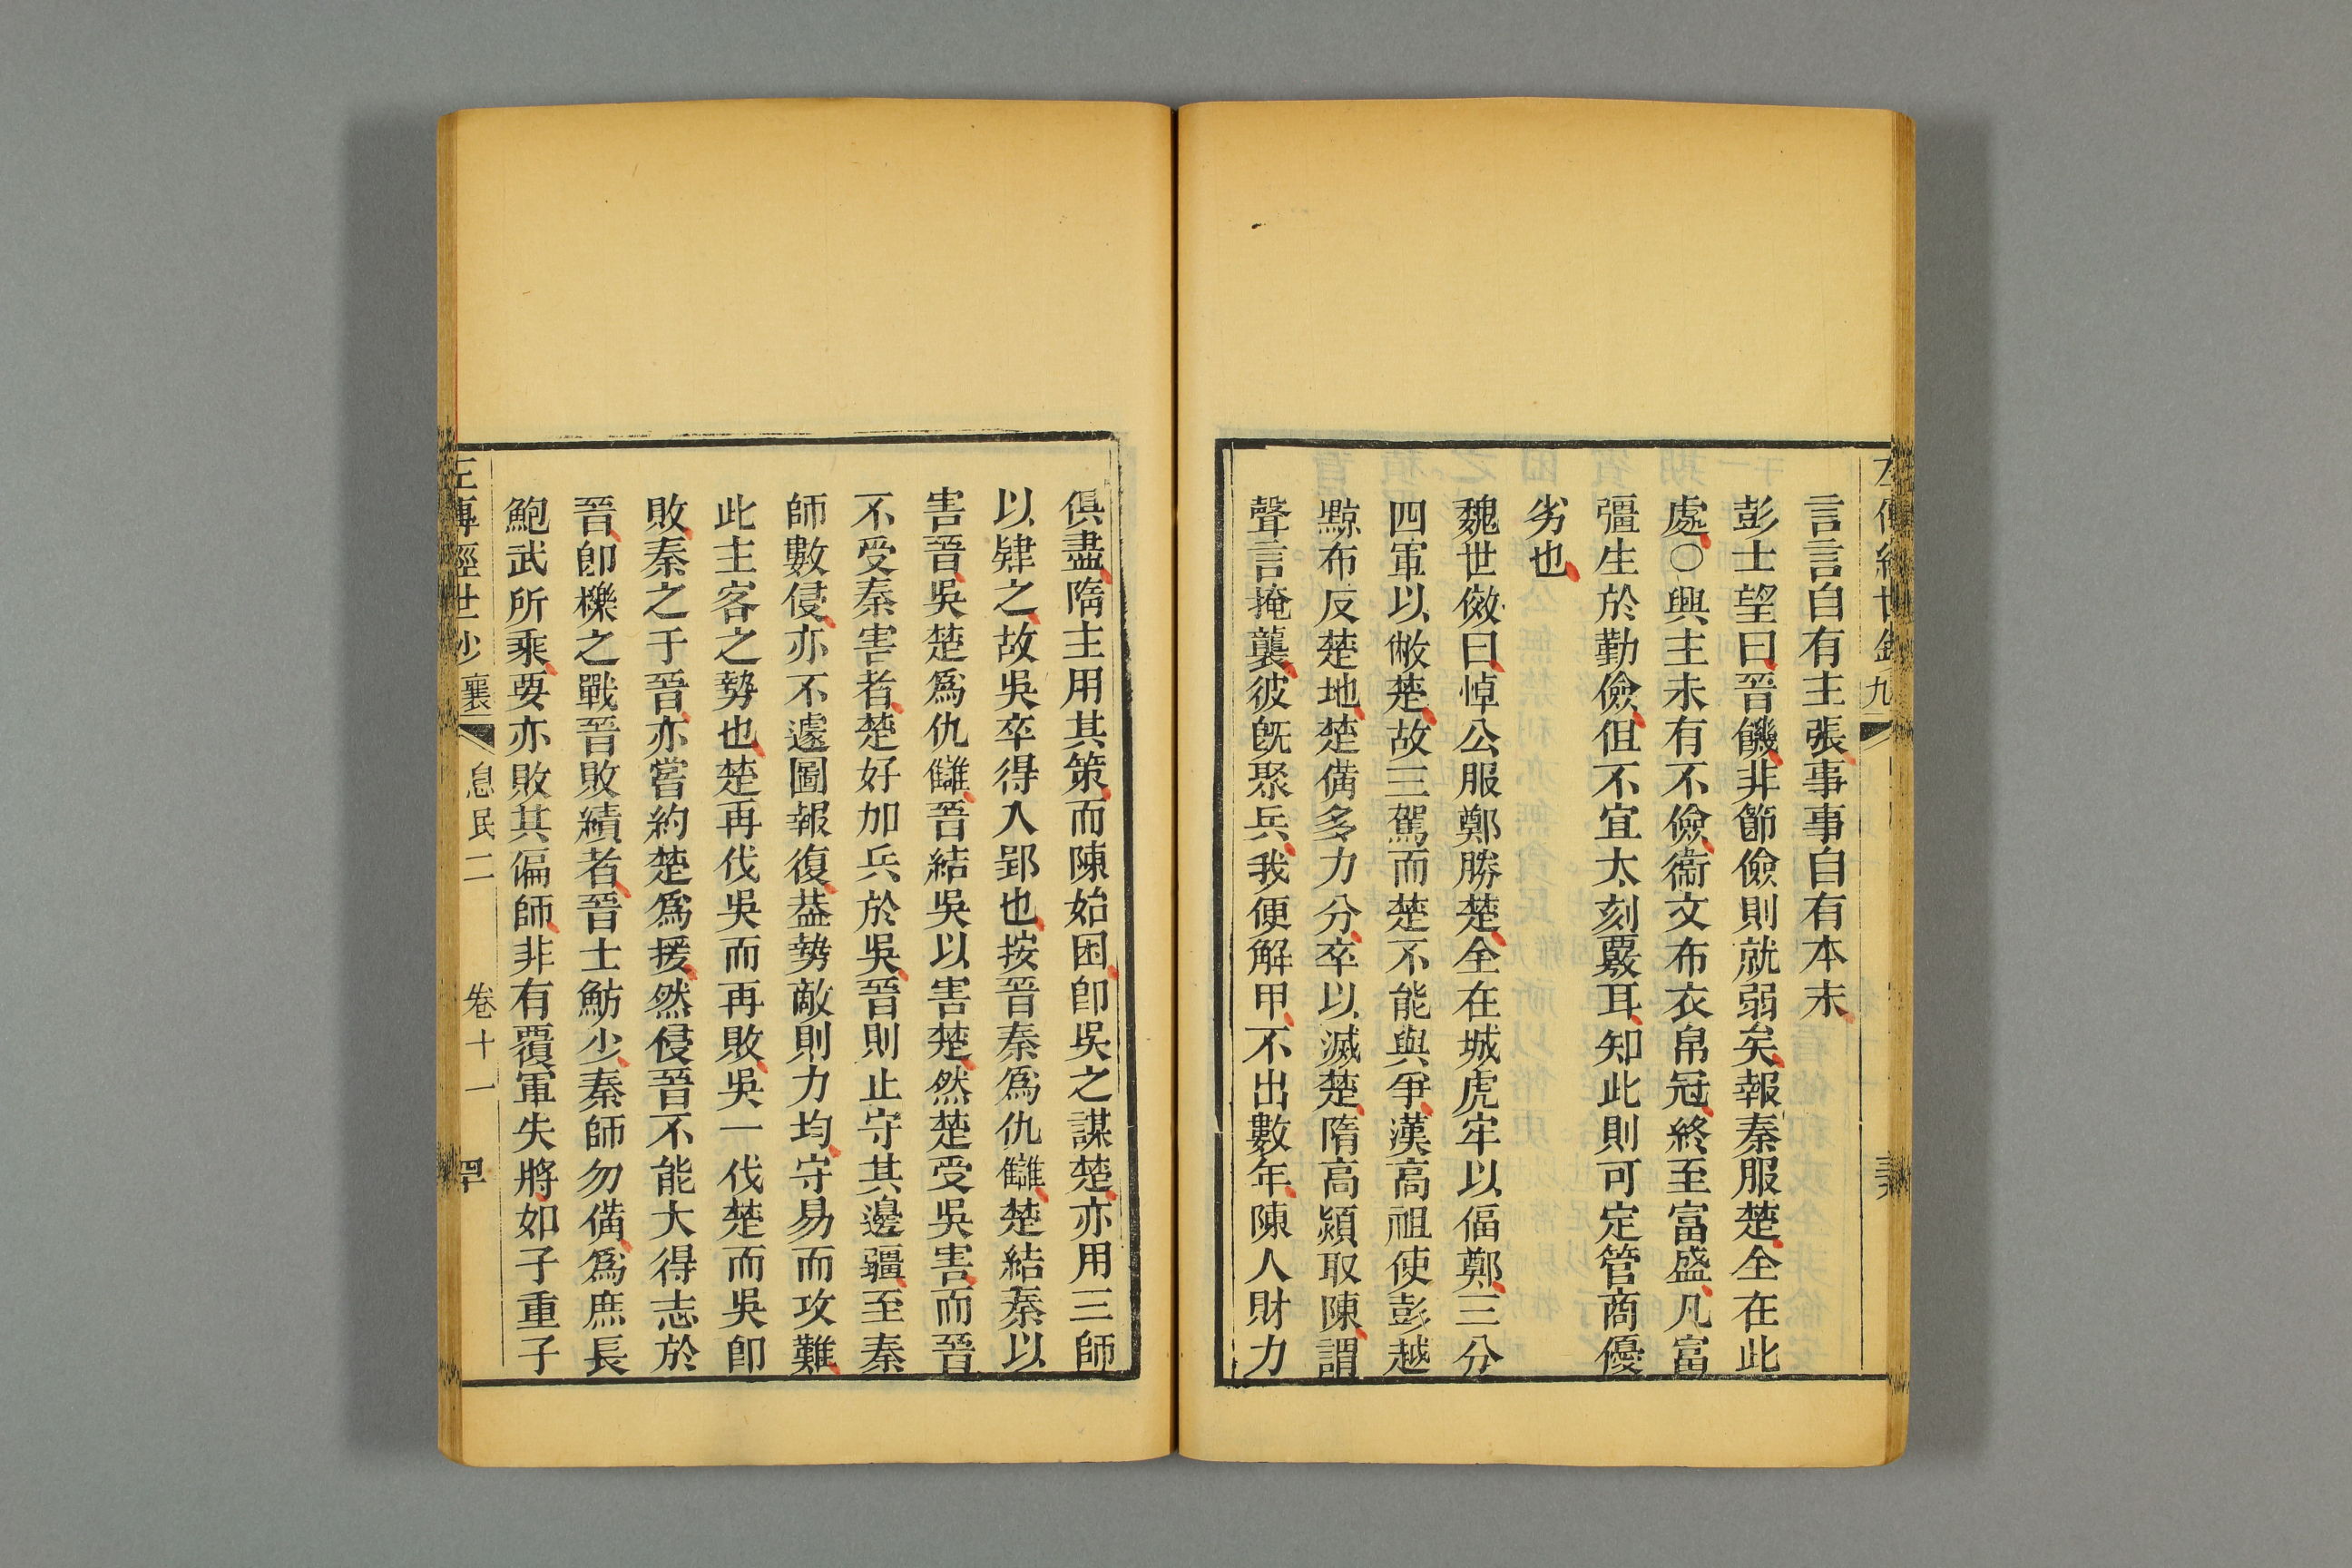 言言自有主張事事自有本末
彭士望曰晉饑非節儉則就弱矣報秦服楚全在此
處○興主未有不儉衞文布衣帛冠終至富盛凡富
彊生於勤儉但不宜太刻覈耳知此則可定管商優
劣也
魏世傚曰悼公服鄭勝楚全在城虎牢以偪鄭三分
四軍以敝楚故三駕而楚不能與爭漢高祖使彭越
黥布反楚地楚備多力分卒以滅楚隋高熲取陳謂
聲言掩襲彼旣聚兵我便解甲不出數年陳人財力
俱盡隋主用其策而陳始困卽吳之謀楚亦用三師
以肄之故吳卒得入郢也按晉秦爲仇讎楚結秦以
害晉吳楚爲仇讎晉結吳以害楚然楚受吳害而晉
不受秦害者楚好加兵於吳晉則止守其邊疆至秦
師數侵亦不遽圖報復葢勢敵則力均守易而攻難
此主客之勢也楚再伐吳而再敗吳一伐楚而吳卽
敗秦之于晉亦嘗約楚爲援然侵晉不能大得志於
晉卽櫟之戰晉敗績者晉士魴少秦師勿備爲庶長
鮑武所乘要亦敗其偏師非有覆軍失將如子重子
襄
息民二
卷十一